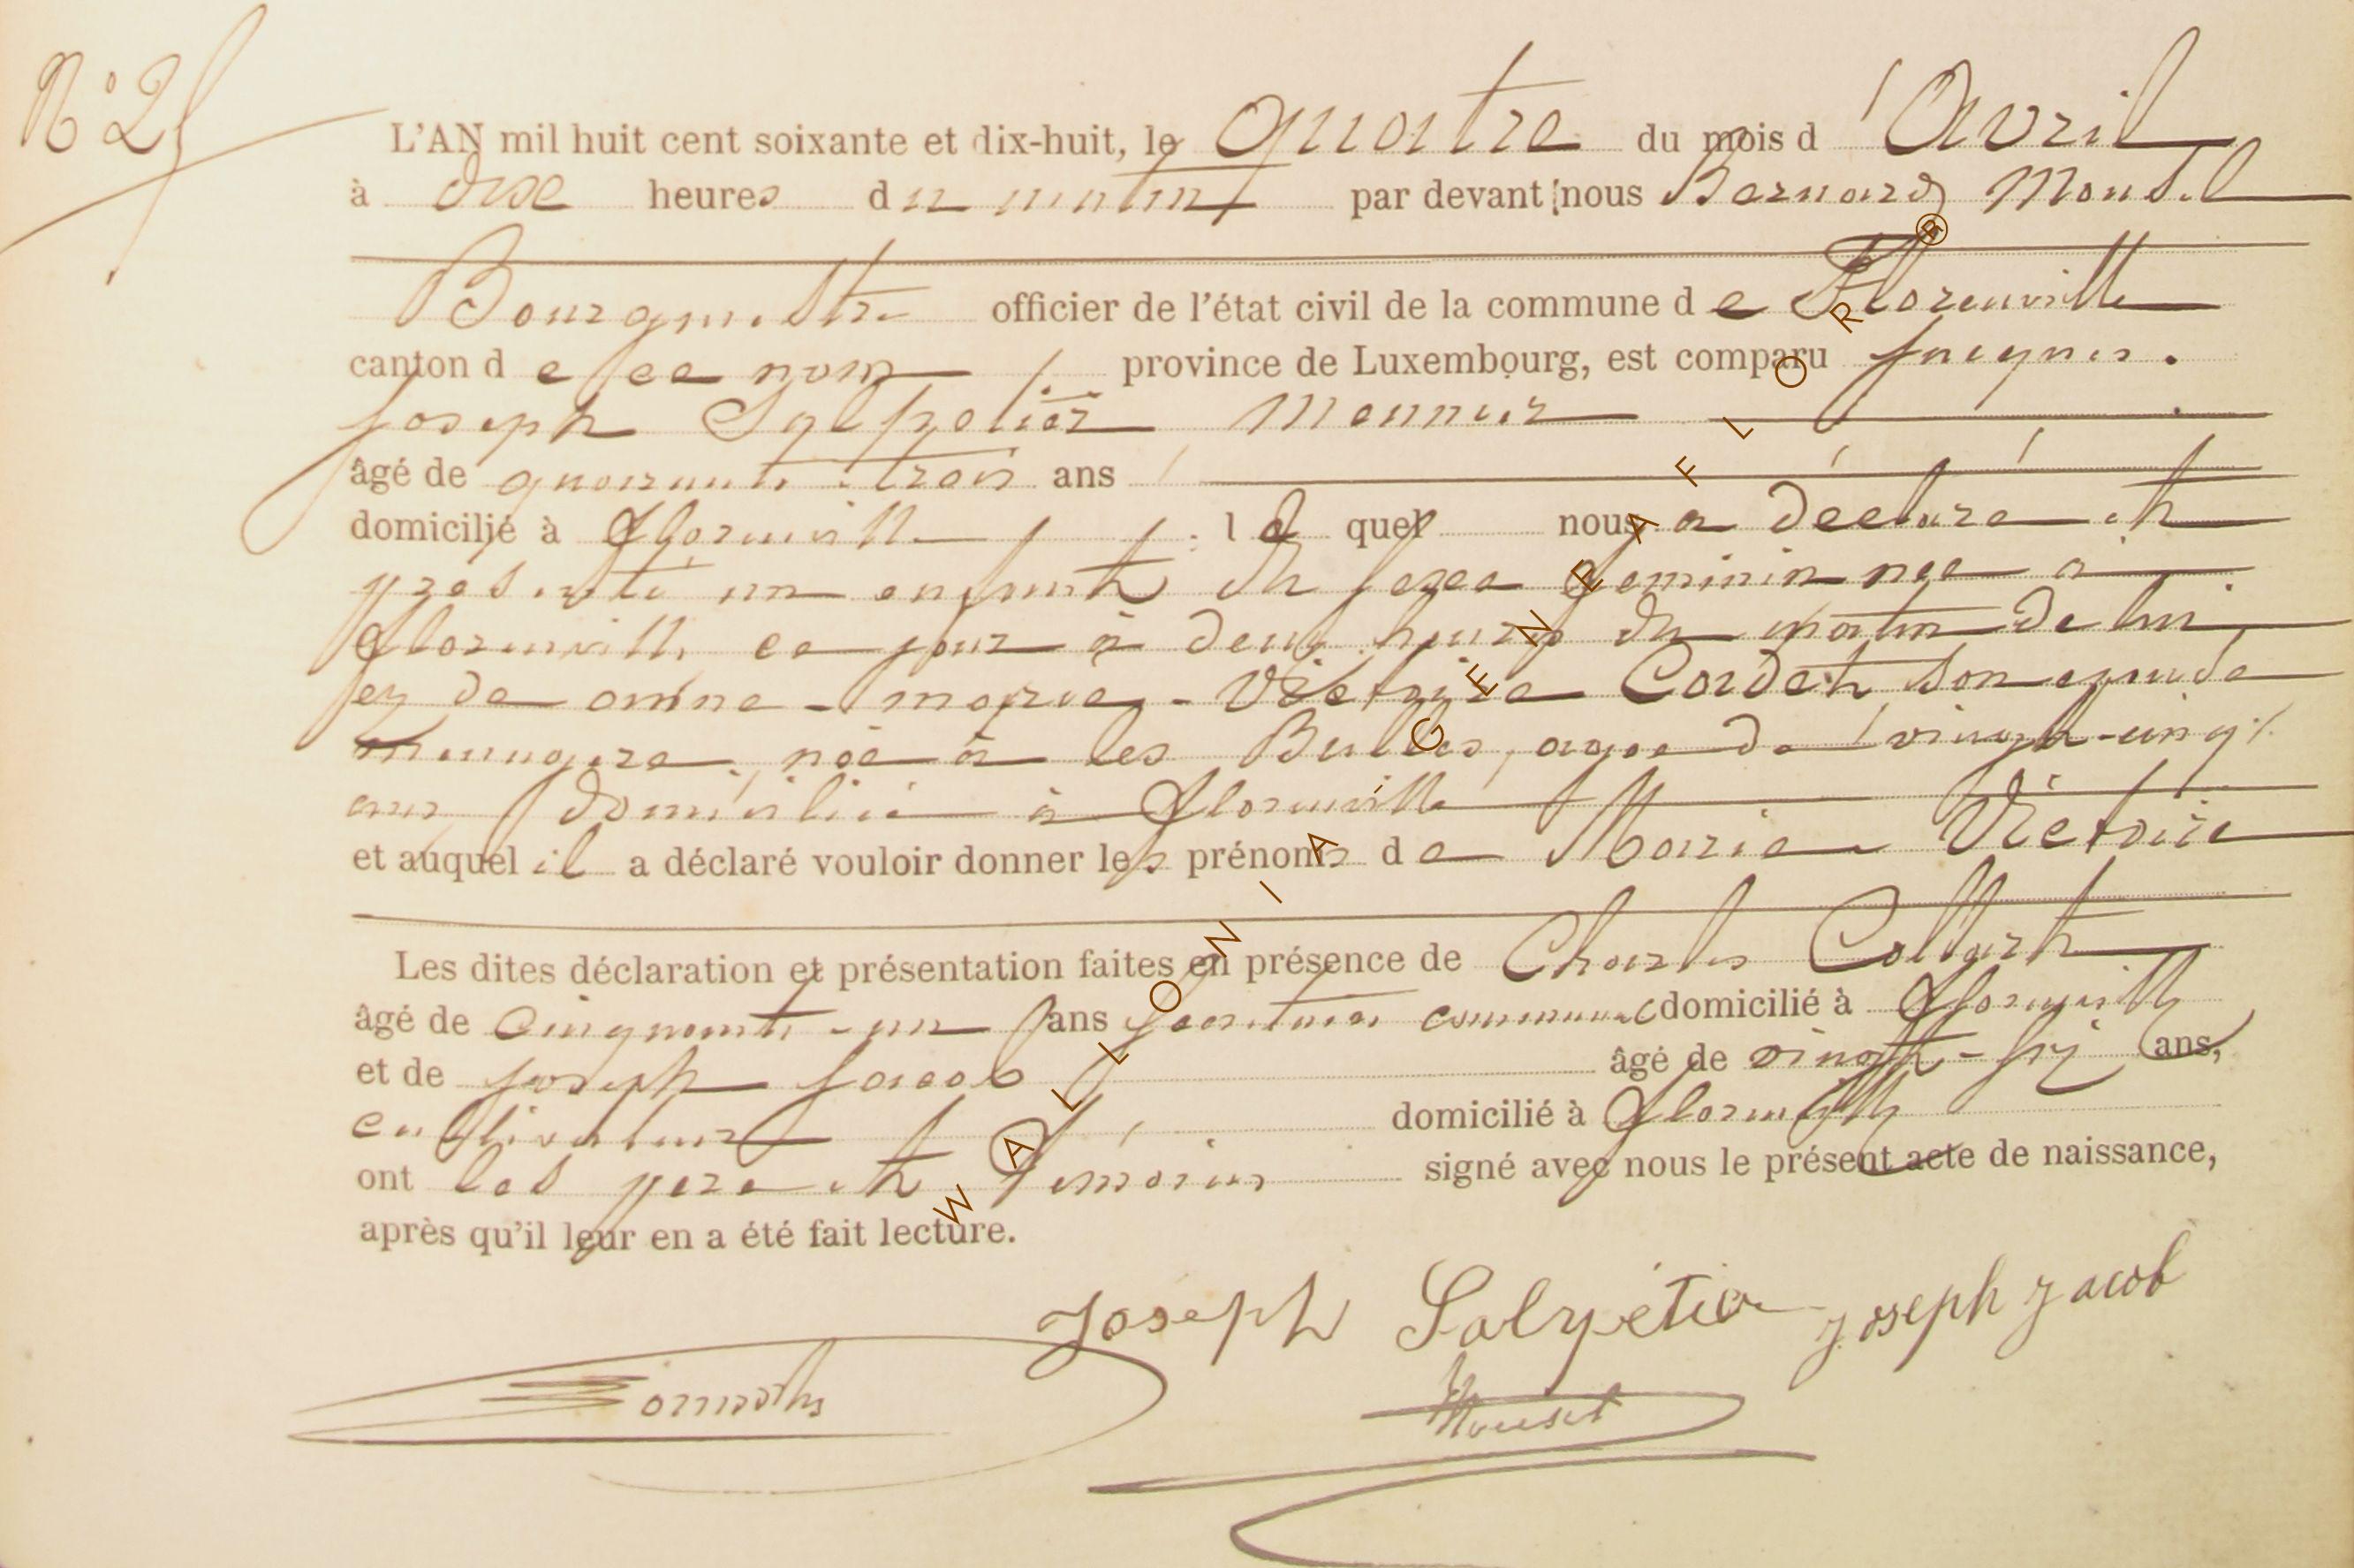 N° 2
L'AN mil huit cent soixante et dix-huit, le quatre du mois d'Avril
à dix heures du matin par devant nous Bernard
Bourgmestre officier de l'état civil de la commune de Florenville
canton de ce nom province de Luxembourg, est comparu Jacques
Joseph Salpetier Meunier
âgé de quarante trois ans
domicilié à Florenville lequel nous a déclaré et
présenté un enfant du sexe feminin née à
Florenville ce jour à deux heures du matin de lui
et de anne - maria - Victoire son epouse
menagère, née à les Bulles, agee de vingt-cinq
ans domicilié à Florenville
et auquel il a déclaré vouloir donner les prénoms de Maria Victoire
Les dites déclaration et présentation faites en présence de Charles Collart
âgé de Cinquante-un ans communal domicilié à Florenville
et de Joseph Jacob âgé de vingt-six ans,
cultivateur domicilié à Florenville
ont les pere et témoins signé avec nous le présent acte de naissance,
après qu'il leur en a été fait lecture.
Joseph Salpétier Joseph Jacob
WALLONIA GENEAFLOR®